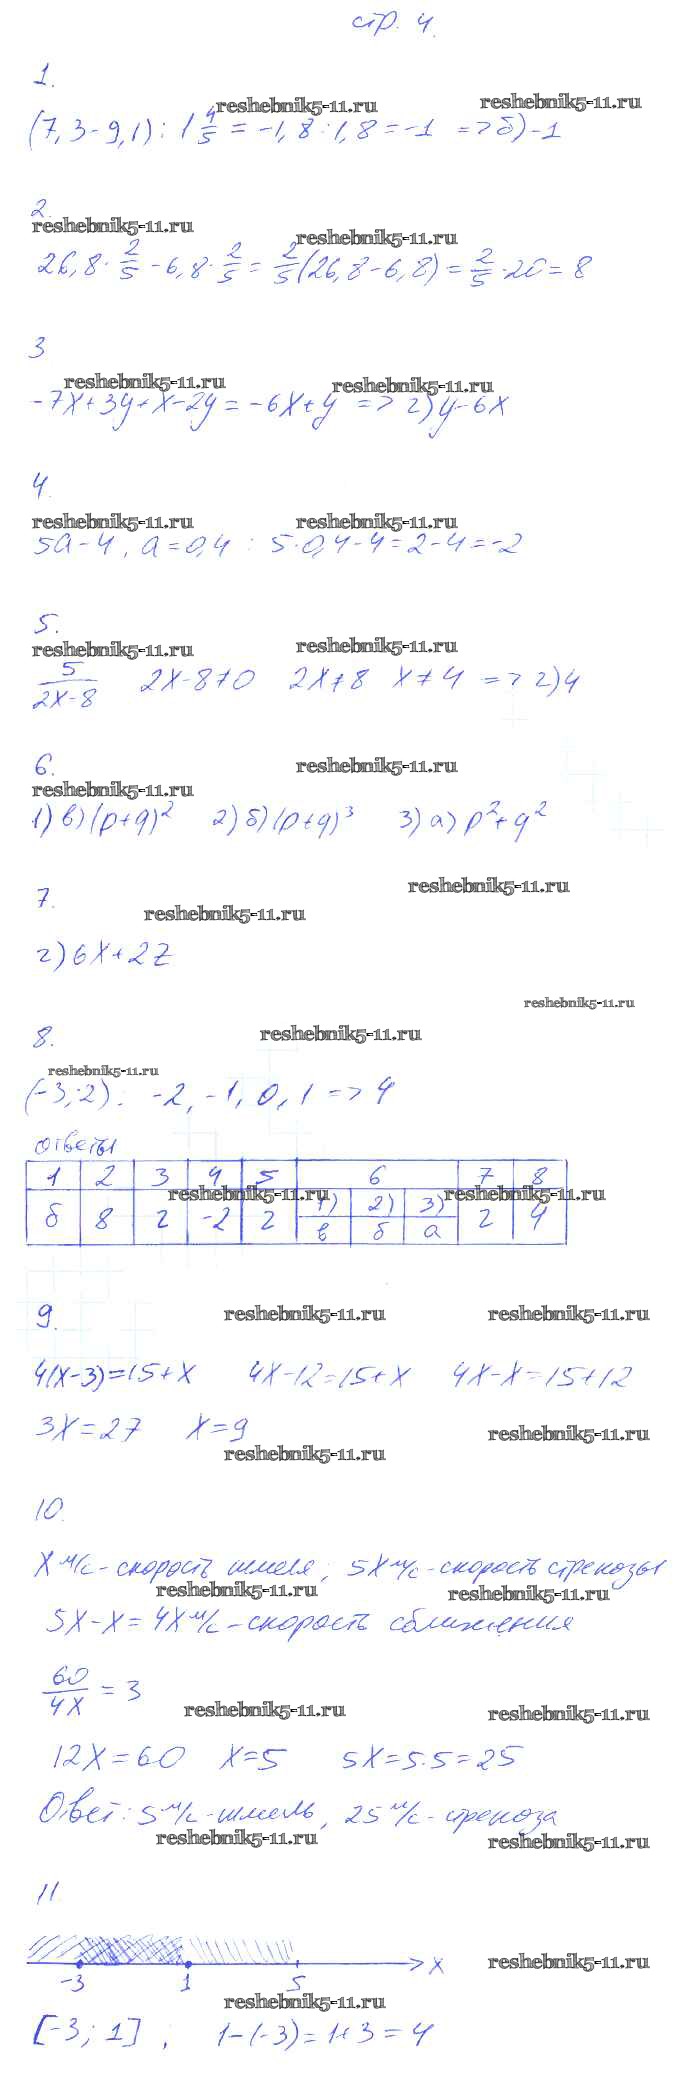 стр. 4.
1.
reshebnik5-11.ru reshebnik5-11.ru
(7,3-9,1) : 1 4/5 = -1,8 : 1,8 = -1 => б) -1
2.
reshebnik5-11.ru reshebnik5-11.ru
26,8 · 2/5 - 6,8 · 2/5 = 2/5 (26,8-6,8) = 2/5 · 20 = 8
3
reshebnik5-11.ru reshebnik5-11.ru
-7x+3y+x-2y = -6x+y => г) y-6x
4.
reshebnik5-11.ru reshebnik5-11.ru
5a-4, a=0,4 : 5·0,4-4=2-4=-2
5.
reshebnik5-11.ru reshebnik5-11.ru
5/(2x-8) 2x-8≠0 2x≠8 x≠4 => г) 4
6.
reshebnik5-11.ru
reshebnik5-11.ru
1) в) (p+q)² 2) б) (p+q)³ 3) а) p²+q²
7.
reshebnik5-11.ru
reshebnik5-11.ru
г) 6x+2z
reshebnik5-11.ru
8.
reshebnik5-11.ru
reshebnik5-11.ru
(-3;2): -2, -1, 0, 1 => 4
ответы
1 2 3 4 5 6 7 8
reshebnik5-11.ru reshebnik5-11.ru
1) 2) 3)
б 8 г -2 г в б а г 4
9.
reshebnik5-11.ru reshebnik5-11.ru
4(x-3)=15+x 4x-12=15+x 4x-x=15+12
3x=27 x=9
reshebnik5-11.ru
reshebnik5-11.ru
10.
x м/с - скорость шмеля; 5x м/с - скорость стрекозы
reshebnik5-11.ru reshebnik5-11.ru
5x-x=4x м/с - скорость сближения
60/4x = 3
reshebnik5-11.ru reshebnik5-11.ru
12x=60 x=5 5x=5·5=25
Ответ: 5 м/с - шмель, 25 м/с - стрекоза
reshebnik5-11.ru reshebnik5-11.ru
11.
x
reshebnik5-11.ru
-3 1 5
reshebnik5-11.ru
[-3; 1] ; 1-(-3)=1+3=4